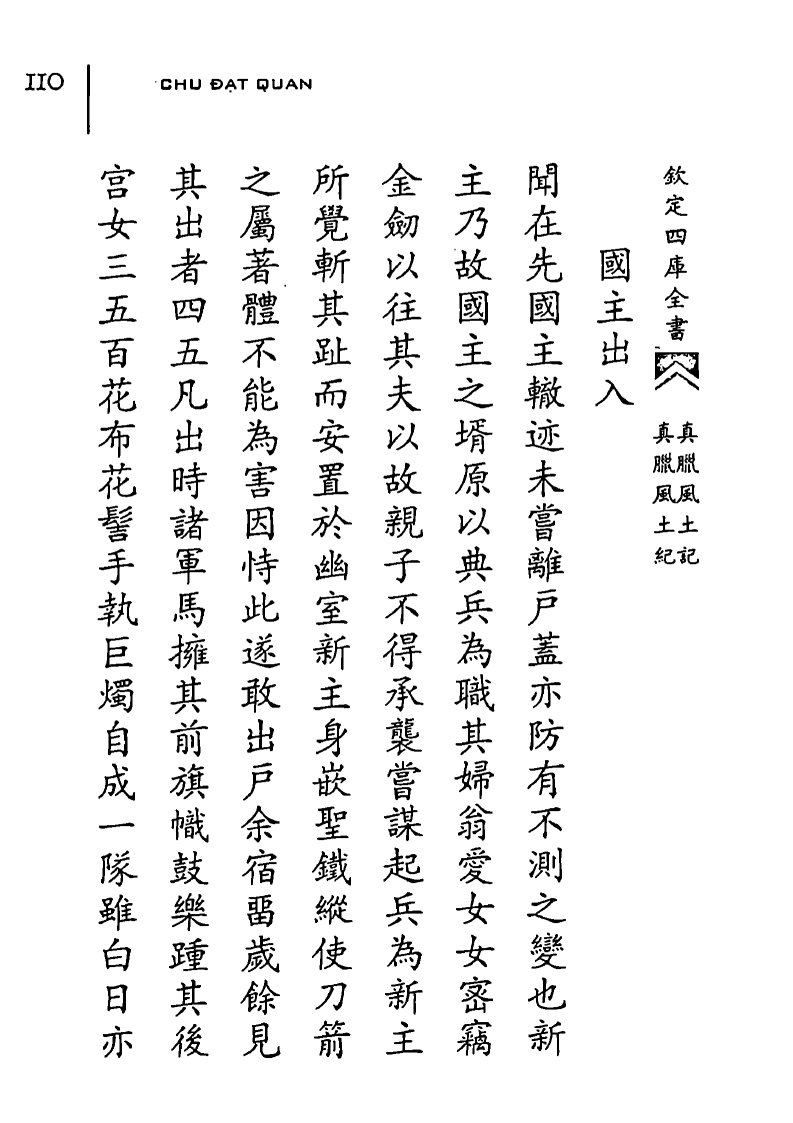 110
CHU ĐẠT QUAN
欽定四庫全書
真臘風土記
真臘風土紀
國主出入
聞在先國主轍迹未嘗離戶蓋亦防有不測之變也新
主乃故國主之壻原以典兵為職其婦翁愛女女密竊
金劒以往其夫以故親子不得承襲嘗謀起兵為新主
所覺斬其趾而安置於幽室新主身嵌聖鐵縱使刀箭
之屬著體不能為害因恃此遂敢出戶余宿畱歲餘見
其出者四五凡出時諸軍馬擁其前旗幟鼓樂踵其後
宮女三五百花布花髻手執巨燭自成一隊雖白日亦